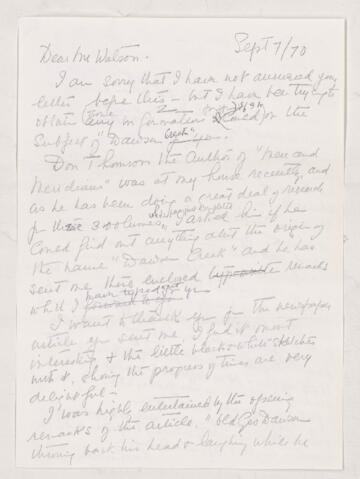 Sept 7/70
Dear Mr Watson.
I am sorry that I have not answered your
letter before this - but I have been trying to
obtain some information for you on the
subject of "Dawson Creek"
Don Thomson the Author of "Men and
Meridians" was at my house recently, and
as he has been doing a great deal of research
for these 3 volumes, I asked him if he
could find out anything about the origin of
the name "Dawson Creek" and he has
sent me these enclosed remarks
which I have typed for you
I want to thank you for the newspaper
article you sent me, I find it most
interesting & the little black & white sketches
with it, showing the progress of times are very
delightful -
I was highly entertained by the opening
remarks of the article, "old Geo Dawson
throwing back his head & laughing while he